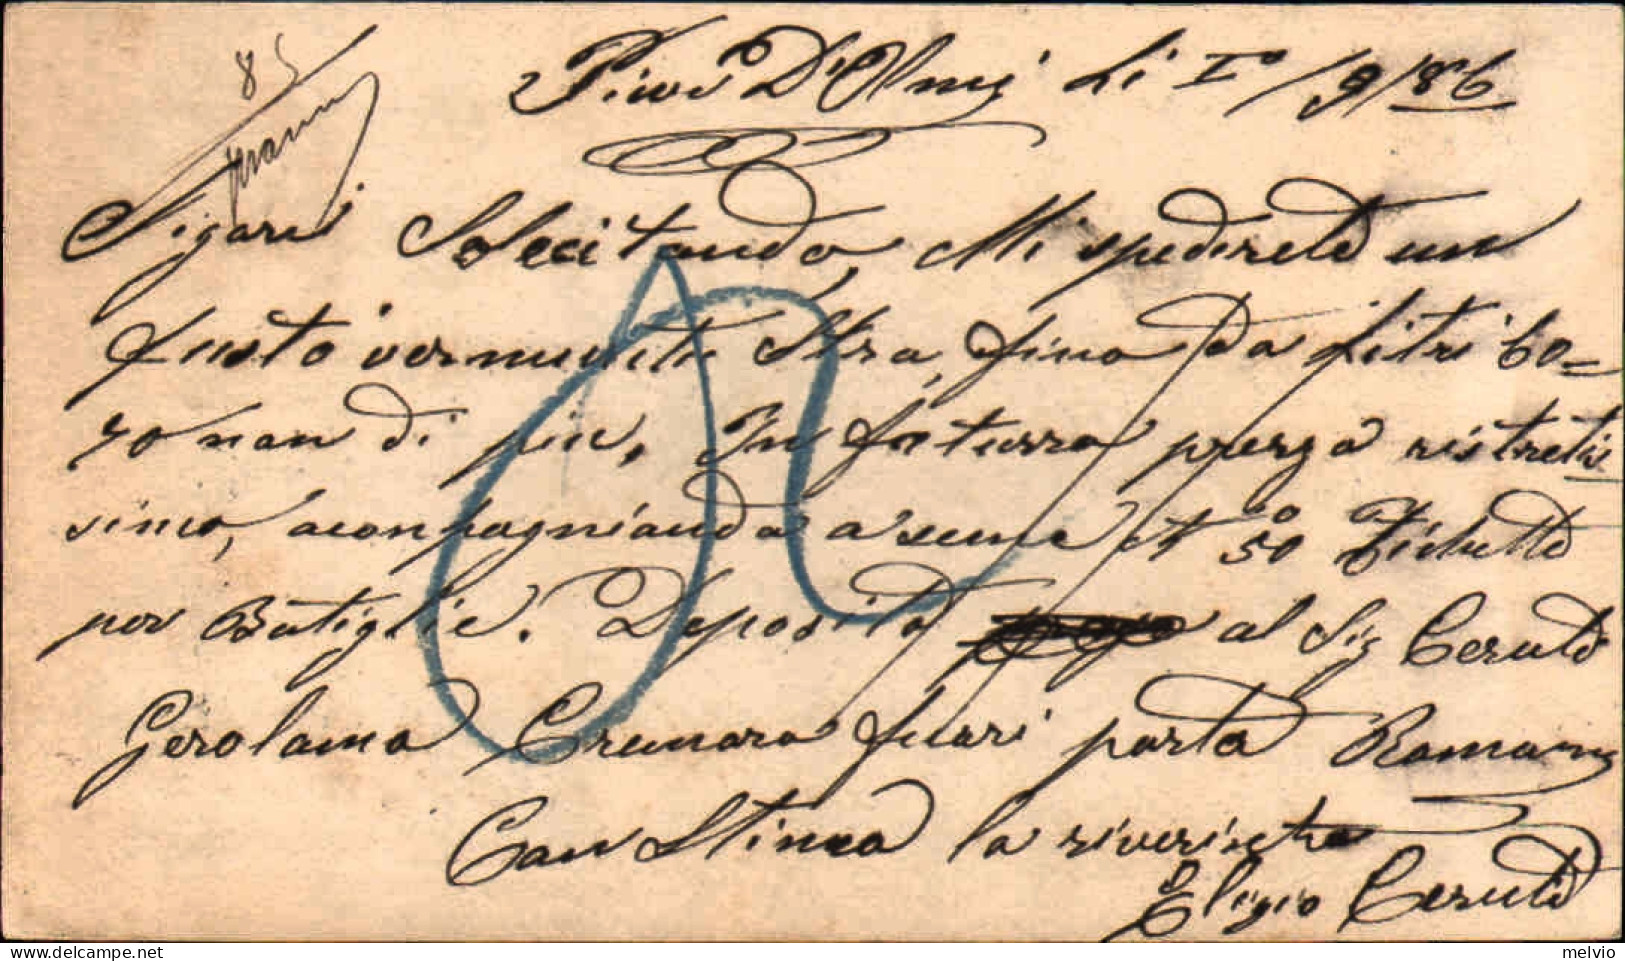 85
Pieve D'Olmi Li I°/9/86
Sigori Solecitando, Mi spedirete un
fusto vermutte Stra, fino da Litri 60=
70 non di piu, In fatturra prezzo ristretis
simo, aconpagniando asieme et 50 Etichette
per Batiglie. Deposito al Sig Cerute
Gerolamo Cremona fuori porta Romana
Con Stimea la riverischo
Eligio Cerute
melvio